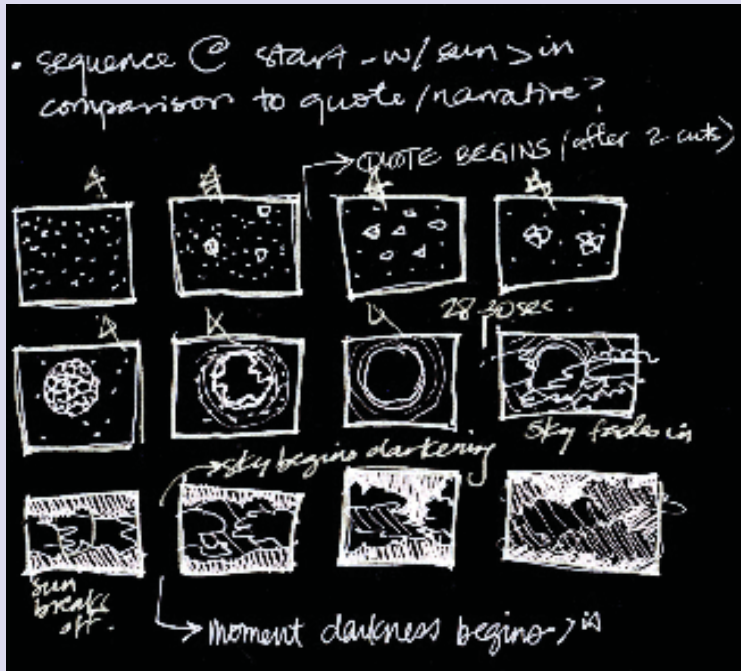 • sequence @ start - w/ sun > in
comparison to quote/narrative?
QUOTE BEGINS (after 2 cuts)
28-30 sec.
Sky fades in
sky begins darkening
Sun
breaks
off.
Moment darkness begins